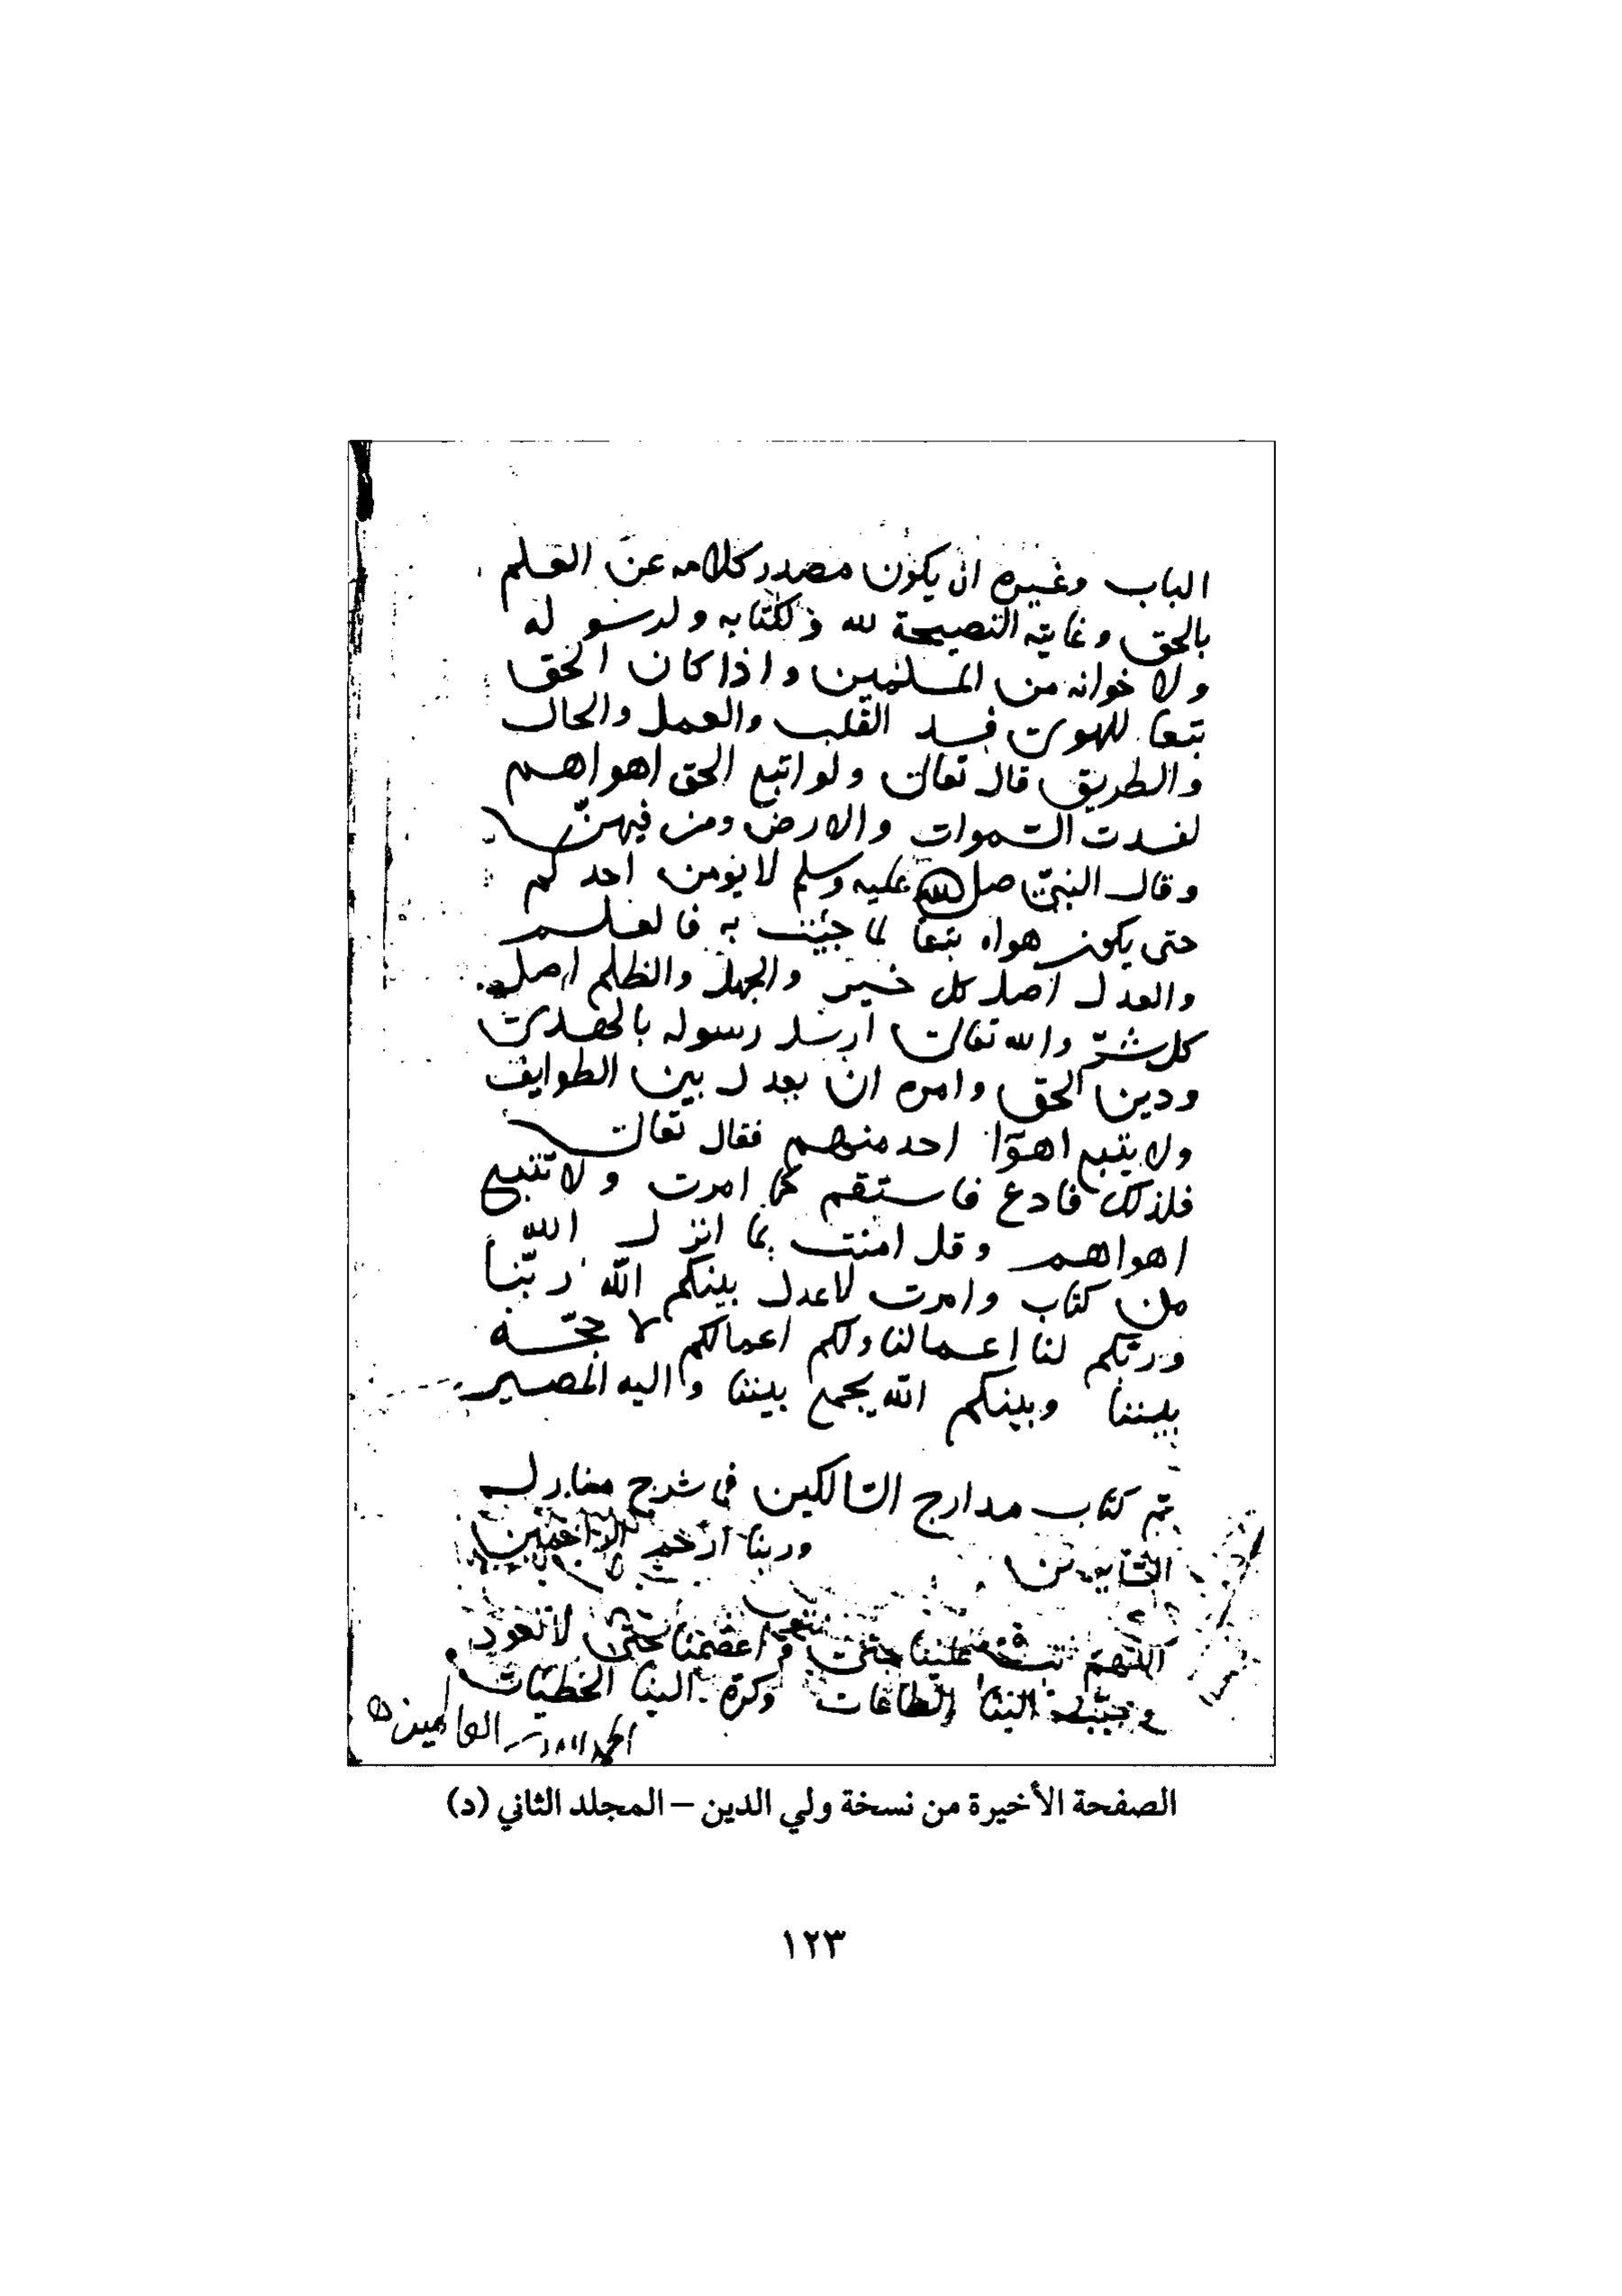 الباب وغيره ان يكون مصدر كلامه عن العلم
بالحق وغايته النصيحة لله ولكتابه ولرسوله
ولاخوانه من المسلمين واذا كان الحق
تبعا للهوى فسد القلب والعمل والحال
والطريق قال تعالى ولو اتبع الحق اهواهم
لفسدت السموات والارض ومن فيهنّ
وقال النبيّ صلى الله عليه وسلم لا يؤمن احدكم
حتى يكون هواه تبعا لما جئت به فالعلم
والعدل اصل كل خير والجهل والظلم اصل
كل شرّ والله تعالى ارسل رسوله بالهدى
ودين الحق وامره ان يعدل بين الطوايف
ولا يتبع اهوآ احد منهم فقال تعالى
فلذلك فادع فاستقم كما امرت ولا تتبع
اهواهم وقل امنت بما انزل الله
من كتاب وامرت لاعدل بينكم الله ربّنا
وربّكم لنا اعمالنا ولكم اعمالكم لا حجّة
بيننا وبينكم الله يجمع بيننا واليه المصير
تم كتاب مدارج السالكين في شرح منازل
السايرين وربنا ارحم الراحمين
اللهم تب علينا حتى نتوب واعصمنا حتى لا نعود
وحبّب الينا الطاعات وكرّه الينا الخطيّات
الحمد لله رب العالمين
الصفحة الأخيرة من نسخة ولي الدين – المجلد الثاني (د)
١٢٣